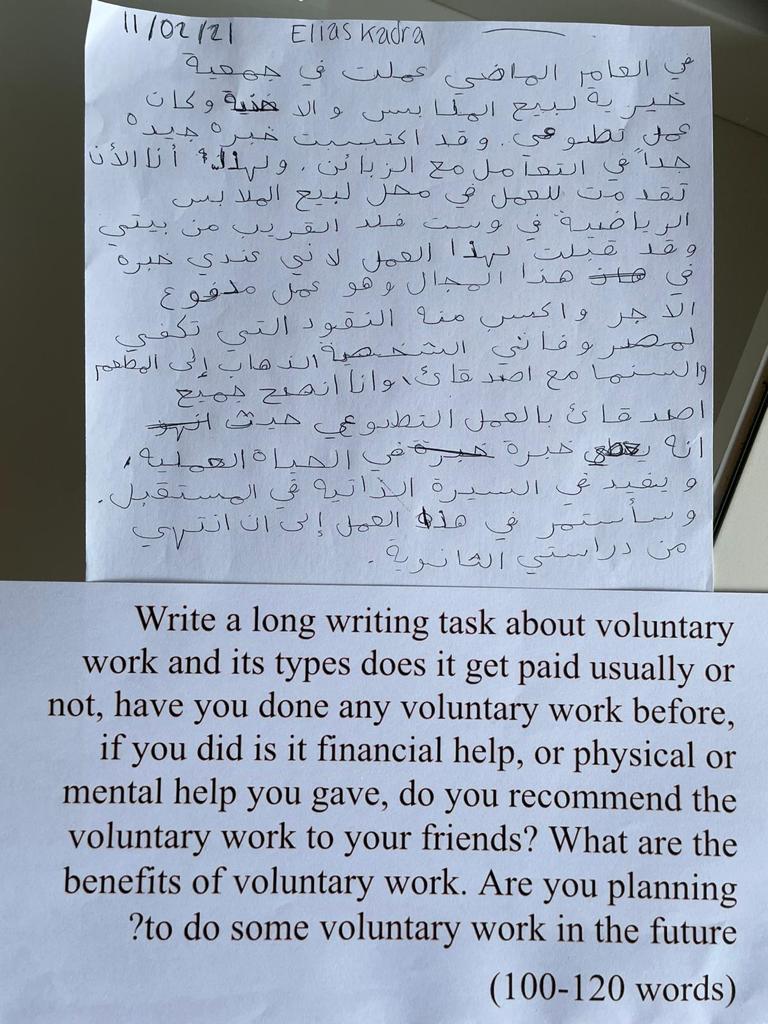 11/02/21 Elias Kadra
في العام الماضي عملت في جمعية
خيرية لبيع الملابس و الاحذية وكان
عمل تطوعي. وقد اكتسبت خبره جيده
جداً في التعامل مع الزبائن. ولهذا أنا الأن
تقدمت للعمل في محل لبيع الملابس
الرياضية في وست فلد القريب من بيتي
وقد قبلت بهذا العمل لاني عندي خبرة
في هذا المجال وهو عمل مدفوع
الاجر واكسب منه النقود التي تكفي
لمصروفاتي الشخصية الذهاب إلى المطعم
والسنما مع اصدقائ، وانا انصح جميع
اصدقائ بالعمل التطوعي حيث
انه يعطي خبرة في الحياة العملية،
و يفيد في السيرة الذاتية في المستقبل.
و سأستمر في هذا العمل إلى ان انتهي
من دراستي الثانوية.
Write a long writing task about voluntary
work and its types does it get paid usually or
not, have you done any voluntary work before,
if you did is it financial help, or physical or
mental help you gave, do you recommend the
voluntary work to your friends? What are the
benefits of voluntary work. Are you planning
?to do some voluntary work in the future
(100-120 words)